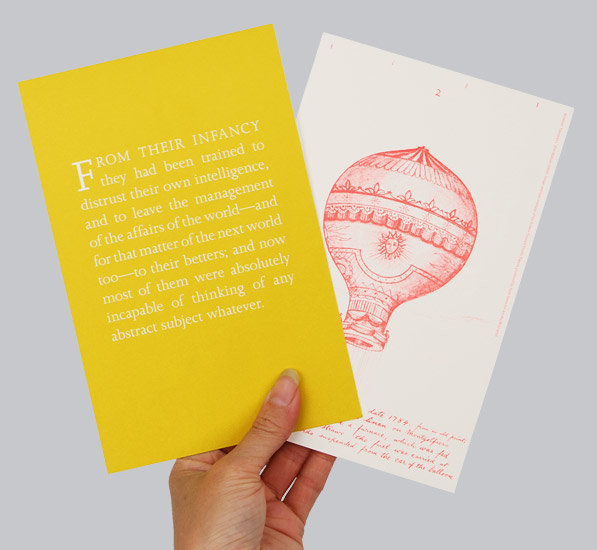 FROM THEIR INFANCY
they had been trained to
distrust their own intelligence,
and to leave the management
of the affairs of the world—and
for that matter of the next world
too—to their betters; and now
most of them were absolutely
incapable of thinking of any
abstract subject whatever.
2
date 1784, from an old print
a furnace, which was fed
straw. The fuel was carried in
suspended from the car of the balloon